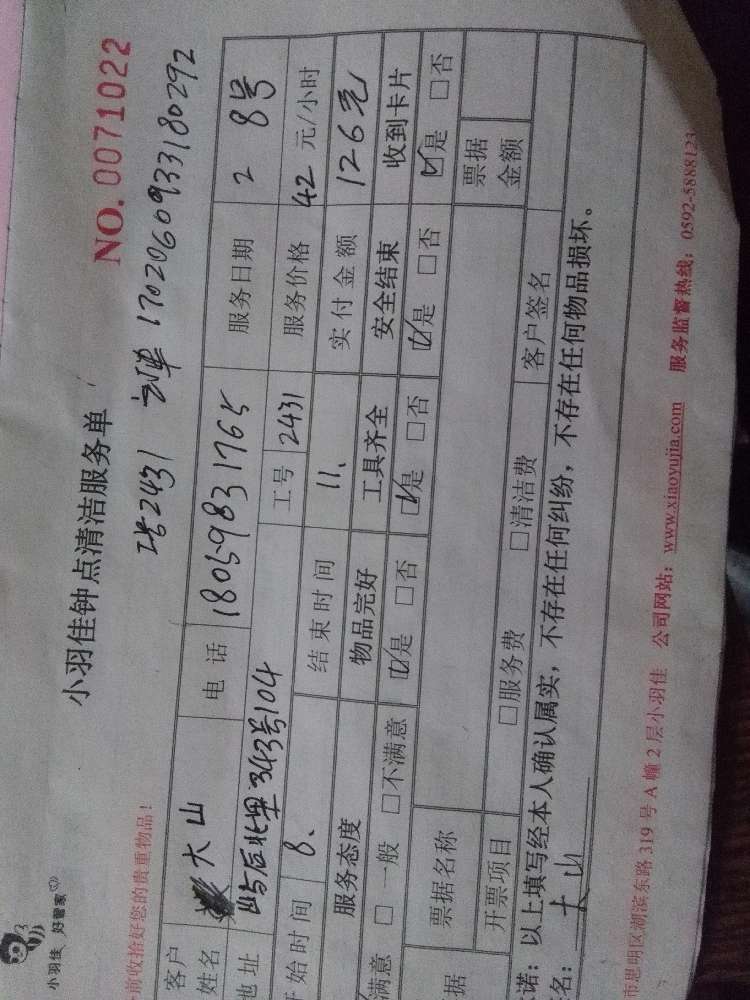 小羽佳 好管家
小羽佳钟点清洁服务单
NO. 0071022
前收拾好您的贵重物品!
2431 订单 1702060933180292
客户姓名 大山 电话 18059831765 服务日期 2 8号
地址 屿后北里343号104 工号 2431 服务价格 42 元/小时
开始时间 8、 结束时间 11、 实付金额 126元
服务态度 物品完好 工具齐全 安全结束 收到卡片
满意 □一般 □不满意 ☑是 □否 ☑是 □否 ☑是 □否 ☑是 □否
据 票据名称 票据金额
开票项目 □服务费 □清洁费 客户签名
诺:以上填写经本人确认属实,不存在任何纠纷,不存在任何物品损坏。
名: 大山
市思明区湖滨东路 319 号 A 幢 2 层小羽佳 公司网站:www.xiaoyujia.com 服务监督热线:0592-5888123